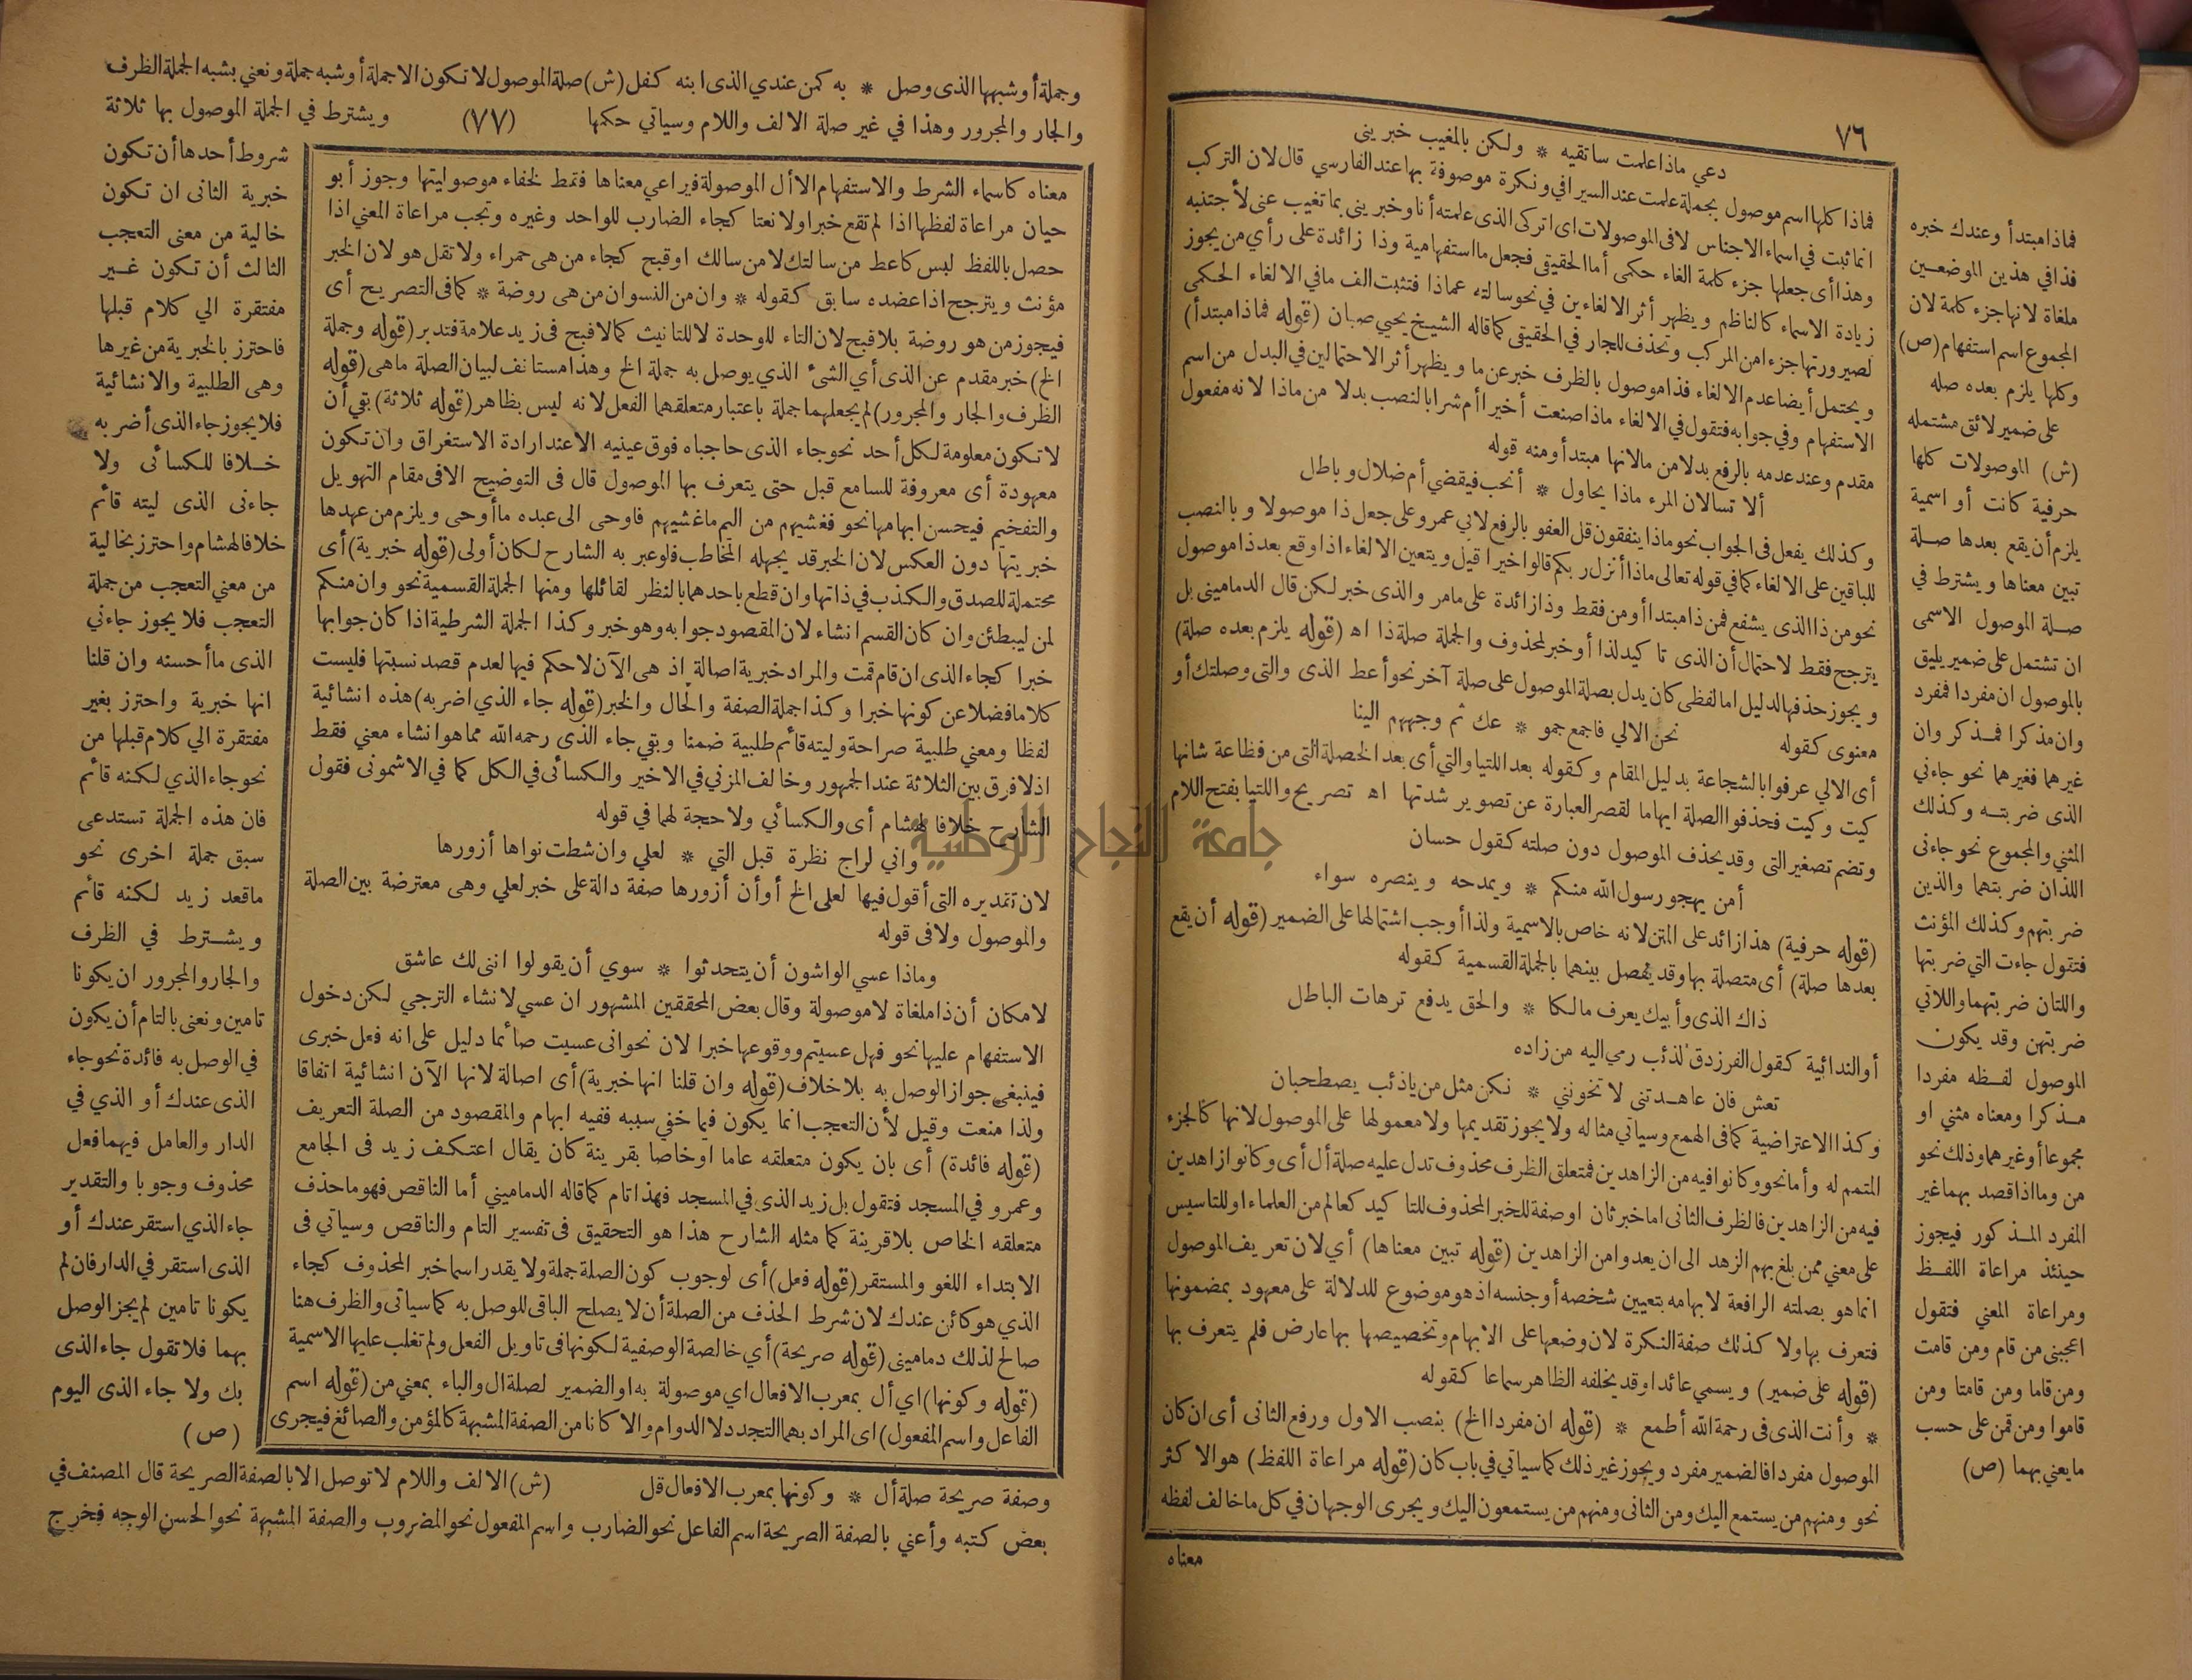 ٧٦
دعي ماذا علمت ساتقيه * ولكن بالمغيب خبريني
فماذا كلها اسم موصول بجملة علمت عند السيرافي ونكرة موصوفة بها عند الفارسي قال لان التركب
انما ثبت في اسماء الاجناس لا فى الموصولات اى اتركى الذى علمته أنا وخبريني بما تغيب عنى لأجتنبه
وهذا أى جعلها جزء كلمة الغاء حكمى أما الحقيقى فجعل ما استفهامية وذا زائدة على رأي من يجوز
زيادة الاسماء كالناظم ويظهر أثر الالغاءين في نحو سالته عماذا فتثبت الف ما في الالغاء الحكمى
لصيرورتها جزءا من المركب وتحذف للجار في الحقيقى كما قاله الشيخ يحيي صبان (قوله فماذا مبتدأ)
ويحتمل أيضا عدم الالغاء فذا موصول بالظرف خبر عن ما ويظهر أثر الاحتمالين في البدل من اسم
الاستفهام وفي جوابه فتقول في الالغاء ماذا صنعت أخيرا أم شرا بالنصب بدلا من ماذا لانه مفعول
مقدم وعند عدمه بالرفع بدلا من ما لانها مبتدأ ومنه قوله
ألا تسالان المرء ماذا يحاول * أنحب فيقضي أم ضلال وباطل
وكذلك يفعل فى الجواب نحو ماذا ينفقون قل العفو بالرفع لابي عمرو على جعل ذا موصولا وبالنصب
للباقين على الالغاء كما في قوله تعالى ماذا أنزل ربكم قالوا خيرا قيل ويتعين الالغاء اذا وقع بعد ذا موصول
نحو من ذا الذى يشفع فمن ذا مبتدا أو من فقط وذا زائدة على مامر والذى خبر لكن قال الدماميني بل
يترجح فقط لاحتمال أن الذى تا كيد لذا أو خبر لمحذوف والجملة صلة ذا اه (قوله يلزم بعده صلة)
ويجوز حذفها لدليل اما لفظى كان يدل بصلة الموصول على صلة آخر نحو أعط الذى والتى وصلتك أو
معنوى كقوله نحن الالي فاجمع جمو * عك ثم وجههم الينا
أى الالي عرفوا بالشجاعة بدليل المقام وكقوله بعد اللتيا والتي أى بعد الخصلة التى من فظاعة شانها
كيت وكيت فحذفوا الصلة ايهاما لقصر العبارة عن تصوير شدتها اه تصريح واللتيا بفتح اللام
وتضم تصغير التى وقد يحذف الموصول دون صلته كقول حسان
أمن يهجو رسول الله منكم * ويمدحه وينصره سواء
(قوله حرفية) هذا زائد على المتن لانه خاص بالاسمية ولذا أوجب اشتمالها على الضمير (قوله أن يقع
بعدها صلة) أى متصلة بها وقد يفصل بينهما بالجملة القسمية كقوله
ذاك الذى وأبيك يعرف مالكا * والحق يدفع ترهات الباطل
أو الندائية كقول الفرزدق لذئب رمي اليه من زاده
تعش فان عاهدتنى لا تخونني * نكن مثل من ياذئب يصطحبان
وكذا الاعتراضية كما فى الهمع وسياتي مثاله ولا يجوز تقديمها ولا معمولها على الموصول لانها كالجزء
المتمم له وأما نحو وكانوا فيه من الزاهدين فمتعلق الظرف محذوف تدل عليه صلة أل أى وكانوا زاهدين
فيه من الزاهدين فالظرف الثانى اما خبر ثان او صفة للخبر المحذوف للتا كيد كعالم من العلماء او للتاسيس
على معني ممن بلغ بهم الزهد الى ان يعدوا من الزاهدين (قوله تبين معناها) أي لان تعريف الموصول
انما هو بصلته الرافعة لابهامه بتعيين شخصه أو جنسه اذ هو موضوع للدلالة على معهود بمضمونها
فتعرف بها ولا كذلك صفة النكرة لان وضعها على الابهام وتخصيصها بها عارض فلم يتعرف بها
(قوله على ضمير) ويسمي عائدا وقد يخلفه الظاهر سماعا كقوله
* وأنت الذى فى رحمة الله أطمع * (قوله ان مفردا الخ) بنصب الاول ورفع الثانى أى ان كان
الموصول مفردا فالضمير مفرد ويجوز غير ذلك كما سياتي في باب كان (قوله مراعاة اللفظ) هو الاكثر
نحو ومنهم من يستمع اليك ومن الثانى ومنهم من يستمعون اليك ويجرى الوجهان في كل ما خالف لفظه
معناه
فماذا مبتدأ وعندك خبره
فذا في هذين الموضعين
ملغاة لانها جزء كلمة لان
المجموع اسم استفهام (ص)
وكلها يلزم بعده صله
على ضمير لائق مشتمله
(ش) الموصولات كلها
حرفية كانت أو اسمية
يلزم أن يقع بعدها صلة
تبين معناها ويشترط في
صلة الموصول الاسمى
ان تشتمل على ضمير يليق
بالموصول ان مفردا فمفرد
وان مذكرا فمذكر وان
غيرهما فغيرهما نحو جاءني
الذى ضربته وكذلك
المثني والمجموع نحو جاءنى
اللذان ضربتهما والذين
ضربتهم وكذلك المؤنث
فتقول جاءت التي ضربتها
واللتان ضربتهما واللاتي
ضربتهن وقد يكون
الموصول لفظه مفردا
مذكرا ومعناه مثني او
مجموعا أو غيرهما وذلك نحو
من وما اذا قصد بهما غير
المفرد المذكور فيجوز
حينئذ مراعاة اللفظ
ومراعاة المعني فتقول
اعجبنى من قام ومن قامت
ومن قاما ومن قامتا ومن
قاموا ومن قمن على حسب
ما يعني بهما (ص)
وجملة أو شبهها الذى وصل * به كمن عندي الذى ابنه كفل (ش) صلة الموصول لا تكون الا جملة أو شبه جملة ونعني بشبه الجملة الظرف
والجار والمجرور وهذا في غير صلة الالف واللام وسياتي حكمها (٧٧) ويشترط في الجملة الموصول بها ثلاثة
معناه كاسماء الشرط والاستفهام الا أل الموصولة فيراعي معناها فقط لخفاء موصوليتها وجوز أبو
حيان مراعاة لفظها اذا لم تقع خبرا ولا نعتا كجاء الضارب للواحد وغيره وتجب مراعاة المعني اذا
حصل باللفظ لبس كاعط من سالتك لا من سالك او قبح كجاء من هى حمراء ولا تقل هو لان الخبر
مؤنث ويترجح اذا عضده سابق كقوله * وان من النسوان من هى روضة * كما فى التصريح أى
فيجوز من هو روضة بلا قبح لان التاء للوحدة لا للتانيث كما لا قبح فى زيد علامة فتدبر (قوله وجملة
الخ) خبر مقدم عن الذى أي الشئ الذي يوصل به جملة الخ وهذا مستانف لبيان الصلة ما هى (قوله
الظرف والجار والمجرور) لم يجعلهما جملة باعتبار متعلقهما الفعل لانه ليس بظاهر (قوله ثلاثة) بقي أن
لا تكون معلومة لكل أحد نحو جاء الذى حاجباه فوق عينيه الا عند ارادة الاستغراق وان تكون
معهودة أى معروفة للسامع قبل حتى يتعرف بها الموصول قال فى التوضيح الا فى مقام التهويل
والتفخيم فيحسن ابهامها نحو فغشيهم من اليم ما غشيهم فاوحى الى عبده ما أوحى ويلزم من عهدها
خبريتها دون العكس لان الخبر قد يجهله المخاطب فلو عبر به الشارح لكان أولى (قوله خبرية) أى
محتملة للصدق والكذب في ذاتها وان قطع باحدهما بالنظر لقائلها ومنها الجملة القسمية نحو وان منكم
لمن ليبطئن وان كان القسم انشاء لان المقصود جوابه وهو خبر وكذا الجملة الشرطية اذا كان جوابها
خبرا كجاء الذى ان قام قمت والمراد خبرية اصالة اذ هى الآن لا حكم فيها لعدم قصد نسبتها فليست
كلاما فضلا عن كونها خبرا وكذا جملة الصفة والحال والخبر (قوله جاء الذي اضربه) هذه انشائية
لفظا ومعني طلبية صراحة وليته قائم طلبية ضمنا وبقي جاء الذى رحمه الله مما هو انشاء معني فقط
اذ لا فرق بين الثلاثة عند الجمهور وخالف المزني في الاخير والكسائى في الكل كما في الاشمونى فقول
الشارح خلافا لهشام أى والكسائي ولا حجة لهما في قوله
واني لراج نظرة قبل التي * لعلي وان شطت نواها أزورها
لان تقديره التى أقول فيها لعلى الخ أو أن أزورها صفة دالة على خبر لعلي وهى معترضة بين الصلة
والموصول ولا فى قوله
وماذا عسي الواشون أن يتحدثوا * سوي أن يقولوا اننى لك عاشق
لامكان أن ذا ملغاة لا موصولة وقال بعض المحققين المشهور ان عسي لانشاء الترجي لكن دخول
الاستفهام عليها نحو فهل عسيتم ووقوعها خبرا لان نحو انى عسيت صائما دليل على انه فعل خبرى
فينبغي جواز الوصل به بلا خلاف (قوله وان قلنا انها خبرية) أى اصالة لانها الآن انشائية اتفاقا
ولذا منعت وقيل لأن التعجب انما يكون فيما خفي سببه ففيه ابهام والمقصود من الصلة التعريف
(قوله فائدة) أى بان يكون متعلقه عاما او خاصا بقرينة كان يقال اعتكف زيد فى الجامع
وعمرو في المسجد فتقول بل زيد الذى في المسجد فهذا تام كما قاله الدماميني أما الناقص فهو ما حذف
متعلقه الخاص بلا قرينة كما مثله الشارح هذا هو التحقيق فى تفسير التام والناقص وسياتي فى
الابتداء اللغو والمستقر (قوله فعل) أى لوجوب كون الصلة جملة ولا يقدر اسما خبر المحذوف كجاء
الذي هو كائن عندك لان شرط الحذف من الصلة أن لا يصلح الباقى للوصل به كما سياتى والظرف هنا
صالح لذلك دماميني (قوله صريحة) أي خالصة الوصفية لكونها فى تاويل الفعل ولم تغلب عليها الاسمية
(قوله وكونها) اي أل بمعرب الافعال اي موصولة به او الضمير لصلة ال والباء بمعني من (قوله اسم
الفاعل واسم المفعول) اى المراد بهما التجدد لا الدوام والا كانا من الصفة المشبهة كالمؤمن والصائغ فيجرى
شروط أحدها أن تكون
خبرية الثانى ان تكون
خالية من معنى التعجب
الثالث أن تكون غير
مفتقرة الي كلام قبلها
فاحترز بالخبرية من غيرها
وهى الطلبية والانشائية
فلا يجوز جاء الذى أضربه
خلافا للكسائى ولا
جاءنى الذى ليته قائم
خلافا لهشام واحترز بخالية
من معني التعجب من جملة
التعجب فلا يجوز جاءني
الذى ما أحسنه وان قلنا
انها خبرية واحترز بغير
مفتقرة الي كلام قبلها من
نحو جاء الذي لكنه قائم
فان هذه الجملة تستدعى
سبق جملة اخرى نحو
ما قعد زيد لكنه قائم
ويشترط في الظرف
والجار والمجرور ان يكونا
تامين ونعنى بالتام أن يكون
في الوصل به فائدة نحو جاء
الذى عندك أو الذي في
الدار والعامل فيهما فعل
محذوف وجوبا والتقدير
جاء الذي استقر عندك أو
الذى استقر في الدار فان لم
يكونا تامين لم يجز الوصل
بهما فلا تقول جاء الذى
بك ولا جاء الذى اليوم
(ص)
وصفة صريحة صلة أل * وكونها بمعرب الافعال قل (ش) الالف واللام لا توصل الا بالصفة الصريحة قال المصنف في
بعض كتبه وأعني بالصفة الصريحة اسم الفاعل نحو الضارب واسم المفعول نحو المضروب والصفة المشبهة نحو الحسن الوجه فخرج
جامعة النجاح الوطنية